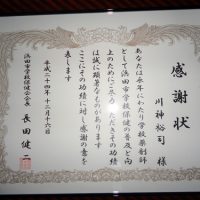 感謝状
川神裕司 様
あなたは永年にわたり学校薬剤師
として浜田市学校保健の普及と向
上のためにご尽力いただきその功績
は誠に顕著なものがあります
ここにその功績に対し感謝の意を
表します
平成二十四年十二月十六日
浜田市学校保健会会長 長田健二